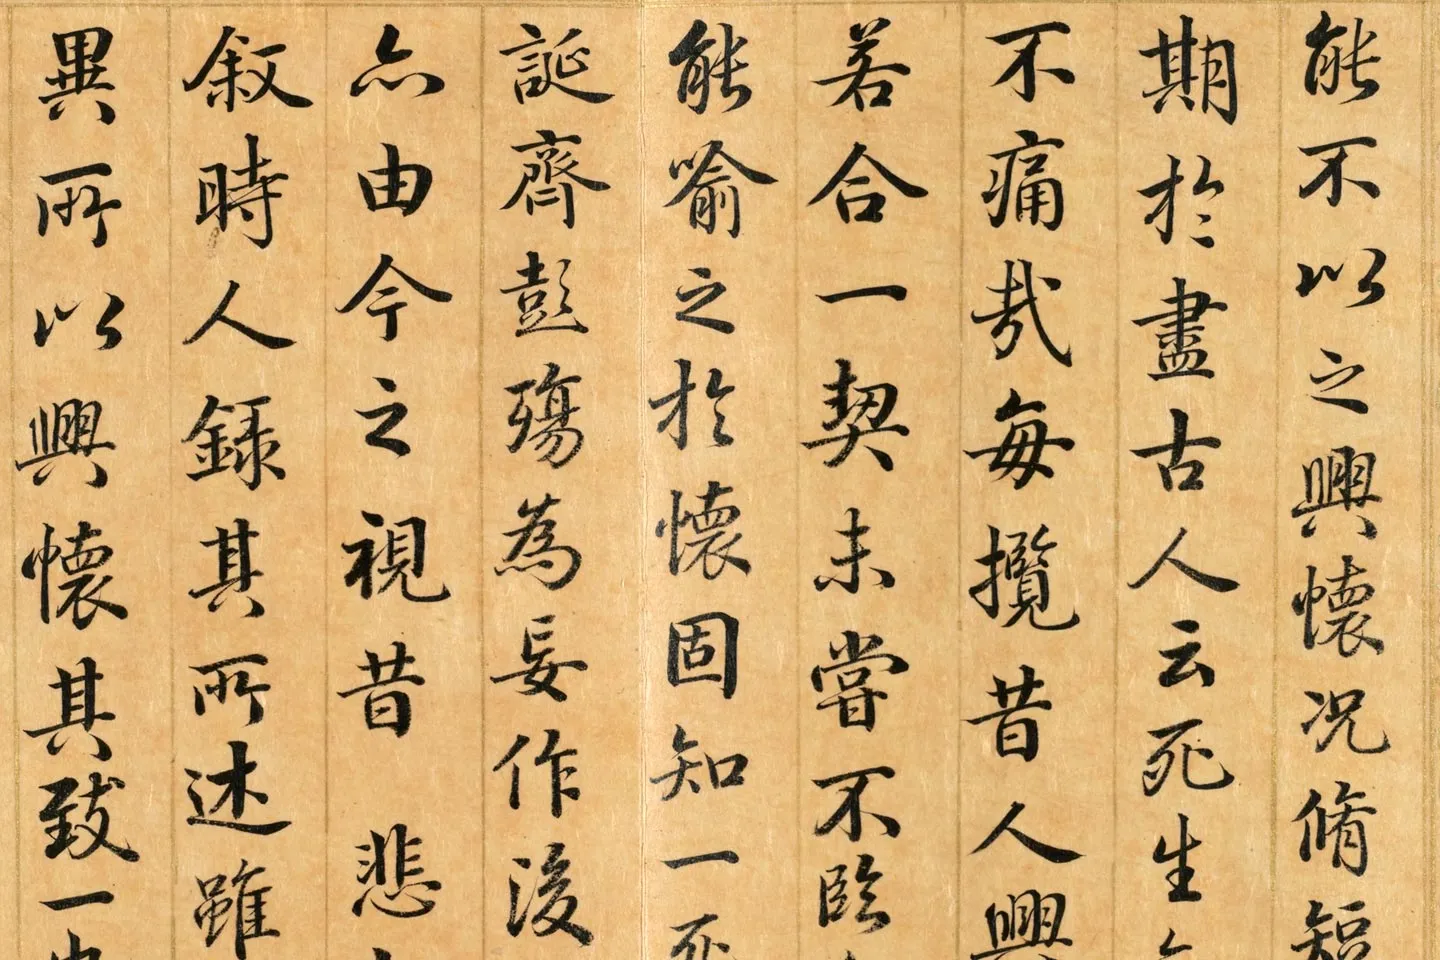 能不以之興懷况脩短
期於盡古人云死生
不痛哉每攬昔人興
若合一契未嘗不臨
能喻之於懷固知一死
誕齊彭殤為妄作後
亦由今之視昔悲
叙時人錄其所述雖
異所以興懷其致一也